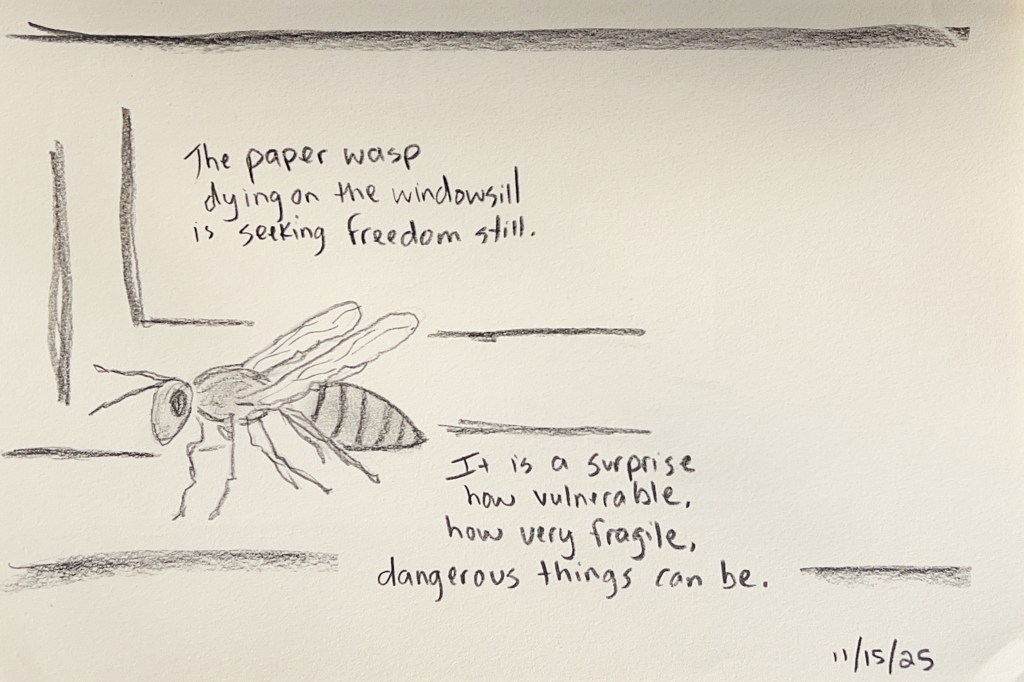 The paper wasp
dying on the windowsill
is seeking freedom still.
It is a surprise
how vulnerable,
how very fragile,
dangerous things can be.
11/15/25